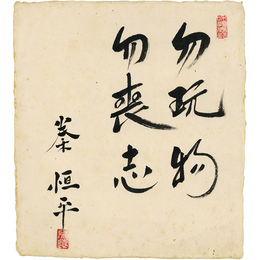 勿玩物
勿喪志
秦恒平